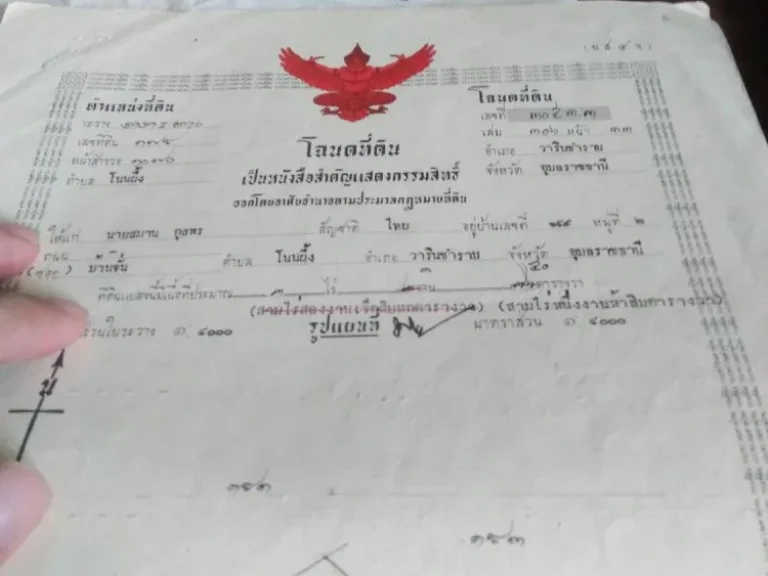 (น.ส. ๔ จ)
ตำแหน่งที่ดิน
ระวาง
เลขที่ดิน
หน้าสำรวจ
ตำบล โนนผึ้ง
โฉนดที่ดิน
เลขที่
เล่ม หน้า ๓๓
อำเภอ วารินชำราบ
จังหวัด อุบลราชธานี
โฉนดที่ดิน
เป็นหนังสือสำคัญแสดงกรรมสิทธิ์
ออกโดยอาศัยอำนาจตามประมวลกฎหมายที่ดิน
ให้แก่ นายสมาน สัญชาติ ไทย อยู่บ้านเลขที่ หมู่ที่ ๒
ถนน
(ซอย) ตำบล โนนผึ้ง อำเภอ วารินชำราบ จังหวัด อุบลราชธานี
ที่ดินแปลงนี้มีเนื้อที่ประมาณ ไร่ งาน ๕๐ ตารางวา
(สามไร่สองงานเจ็ดสิบหกตารางวา) (สามไร่หนึ่งงานห้าสิบตารางวา)
ในระวาง ๑: ๔๐๐๐ รูปแผนที่ มาตราส่วน ๑: ๔๐๐๐
น
๑๔๓